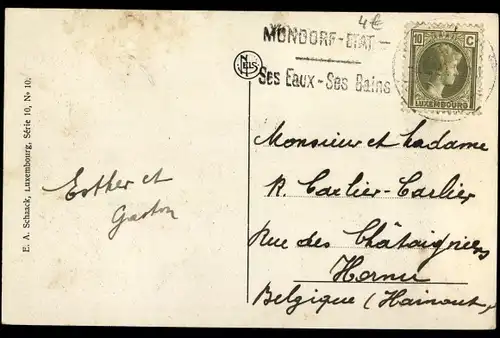 4€
MONDORF-ETAT-
Ses Eaux-Ses Bains
NELS
10 C
LUXEMBOURG
E. A. Schaack, Luxembourg, Série 10, No 10.
Esther et
Gaston
Monsieur et Madame
R. Carlier-Carlier
Rue des Châtaigniers
Hornu
Belgique (Hainaut)